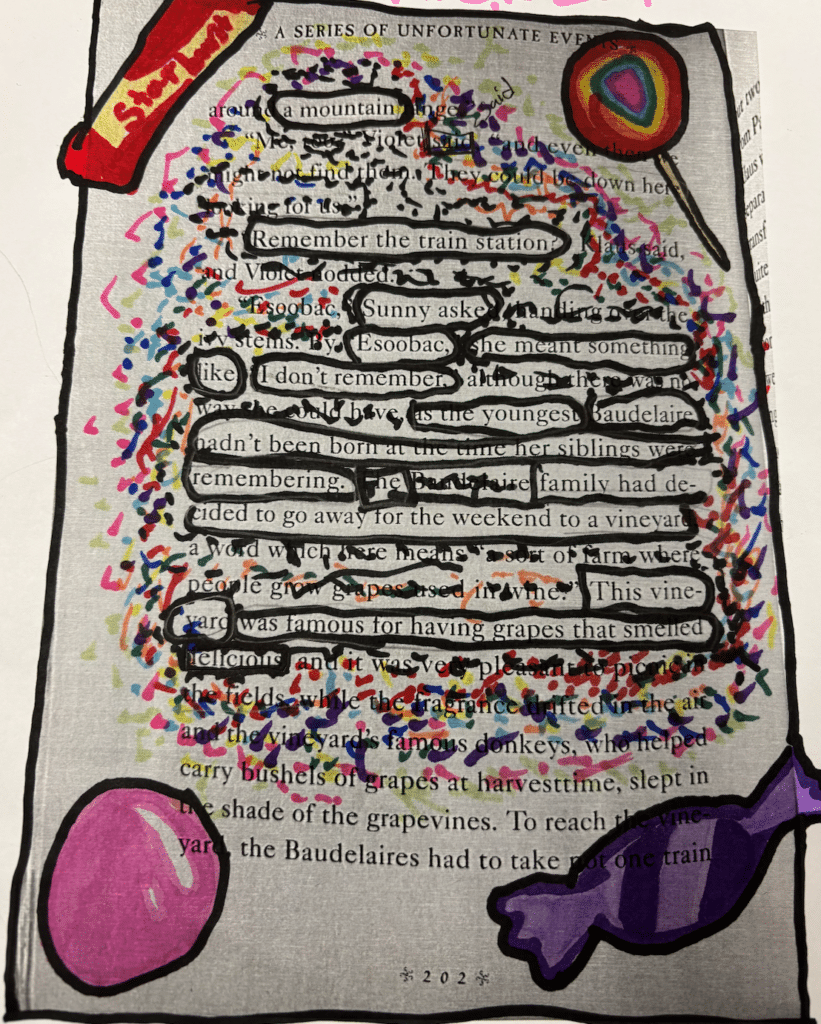 A SERIES OF UNFORTUNATE EVENTS
Starburst
said
around a mountain
"Me, Violet said, "and even then
might not find them. They could be down here
looking for us."
"Remember the train station?" Klaus said,
and Violet nodded.
"Esoobac," Sunny asked, handling over the
ivy stems. By "Esoobac," she meant something
like "I don't remember," although there was no
way she could have, as the youngest Baudelaire
hadn't been born at the time her siblings were
remembering. The Baudelaire family had de-
cided to go away for the weekend to a vineyard,
a word which here means "a sort of farm where
people grow grapes used in wine." This vine-
yard was famous for having grapes that smelled
delicious, and it was very pleasant to picnic in
the fields, while the fragrance drifted in the air
and the vineyard's famous donkeys, who helped
carry bushels of grapes at harvesttime, slept in
the shade of the grapevines. To reach the vine-
yard, the Baudelaires had to take not one train
202